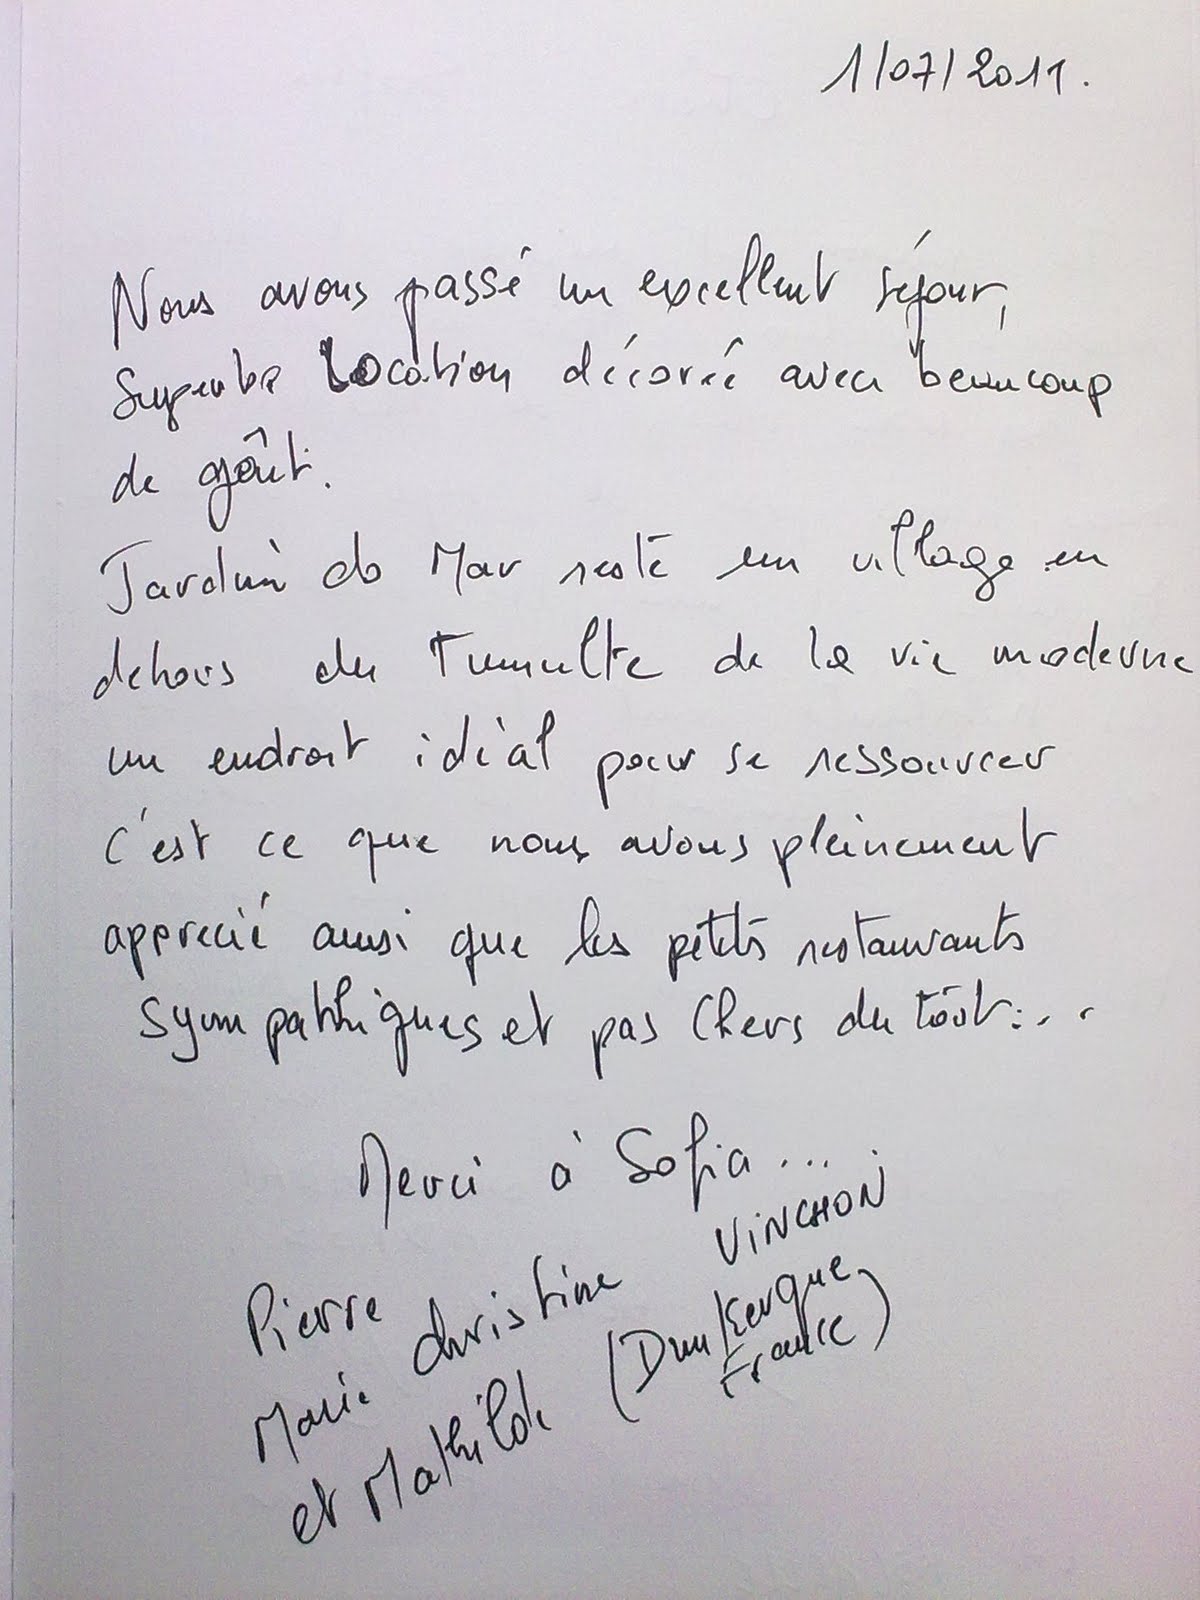 1/07/2011.
Nous avons passé un excellent séjour,
Superbe Location décorée avec beaucoup
de goût.
Jardim do Mar reste un village en
dehors du Tumulte de la vie moderne
un endroit idéal pour se ressourcer
c'est ce que nous avons pleinement
apprecié ainsi que les petits restaurants
sympathiques et pas chers du tout...
Merci à Sofia...
Pierre
Marie christine VINCHON
et Mathilde (Dunkerque
France)